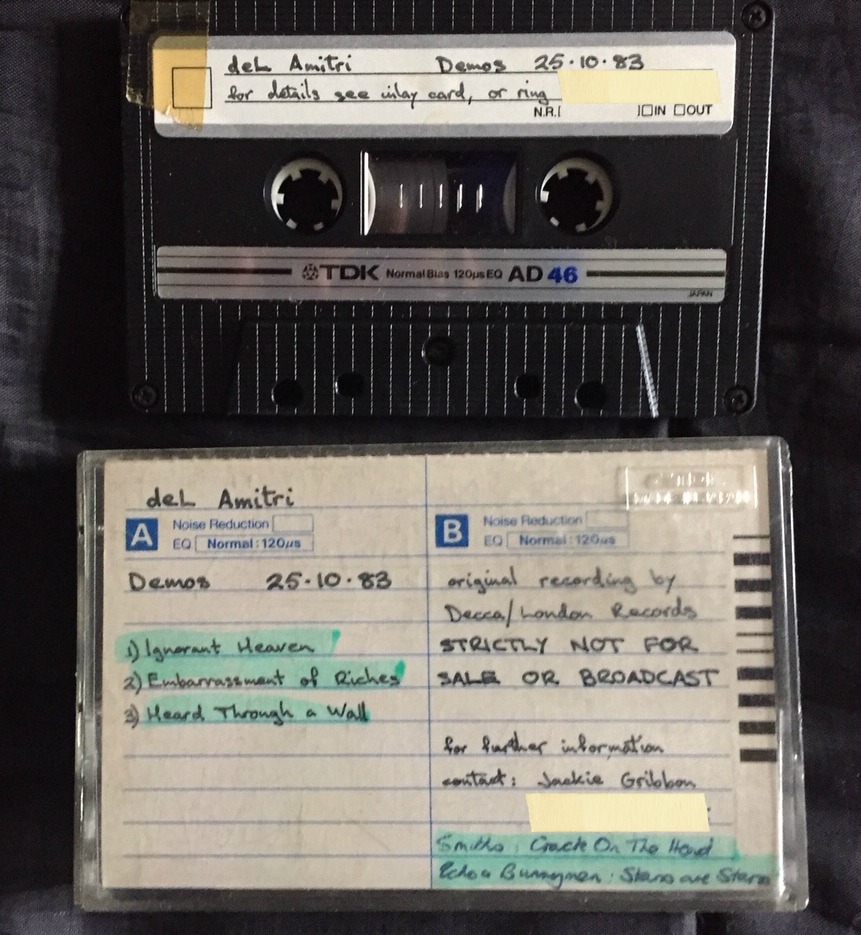 deL Amitri Demos 25·10·83
for details see inlay card, or ring
N.R.[ ]□IN □OUT
TDK Normal Bias 120μs EQ AD 46
JAPAN
deL Amitri
A Noise Reduction
EQ Normal:120μs
Demos 25·10·83
1) Ignorant Heaven
2) Embarrassment of Riches
3) Heard Through a Wall
TDK
B Noise Reduction
EQ Normal:120μs
original recording by
Decca/London Records
STRICTLY NOT FOR
SALE OR BROADCAST
for further information
contact: Jackie Gribbon
Smiths: Crack On The Head
Echo & Bunnymen: Stars are Stars